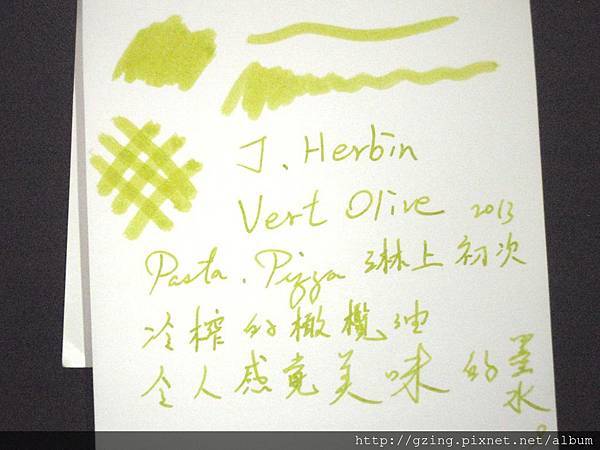 J. Herbin
Vert Olive 2013
Pasta. Pizza 琳上初次
冷榨的橄欖油
令人感覺美味的墨水。
http://gzing.pixnet.net/album